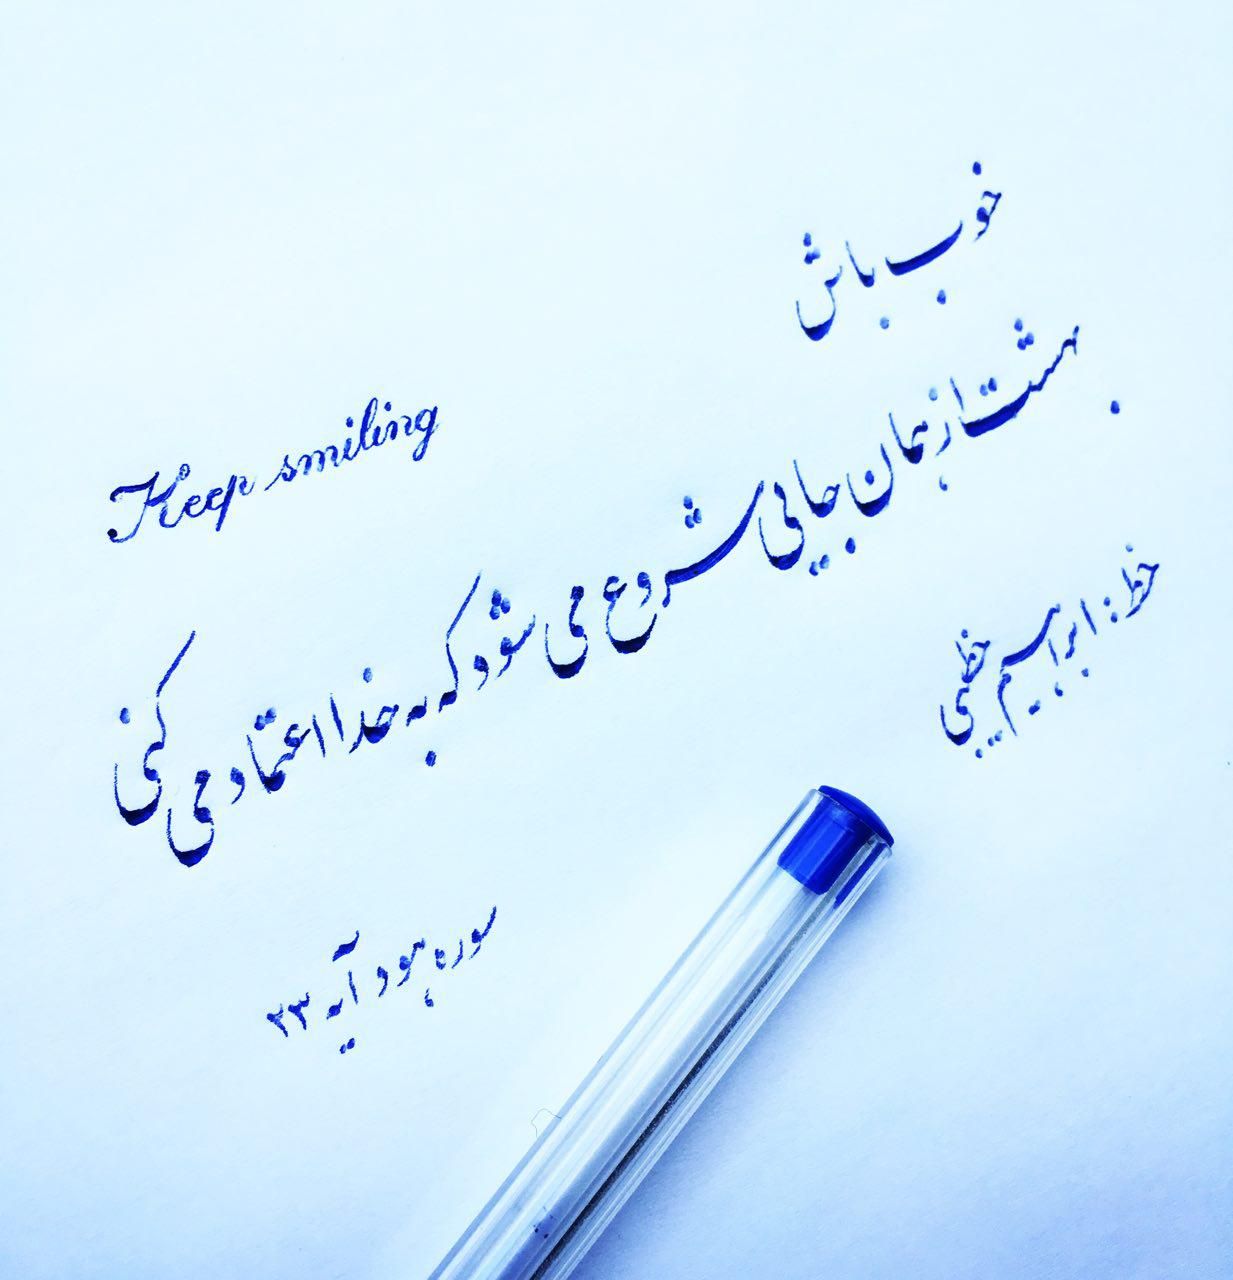 خوب باش
بهشت از همان جایی شروع می شود که به خدا اعتماد می کنی
Keep smiling
خط : ابراهیم خطیبی
سوره هود آیه ۲۳